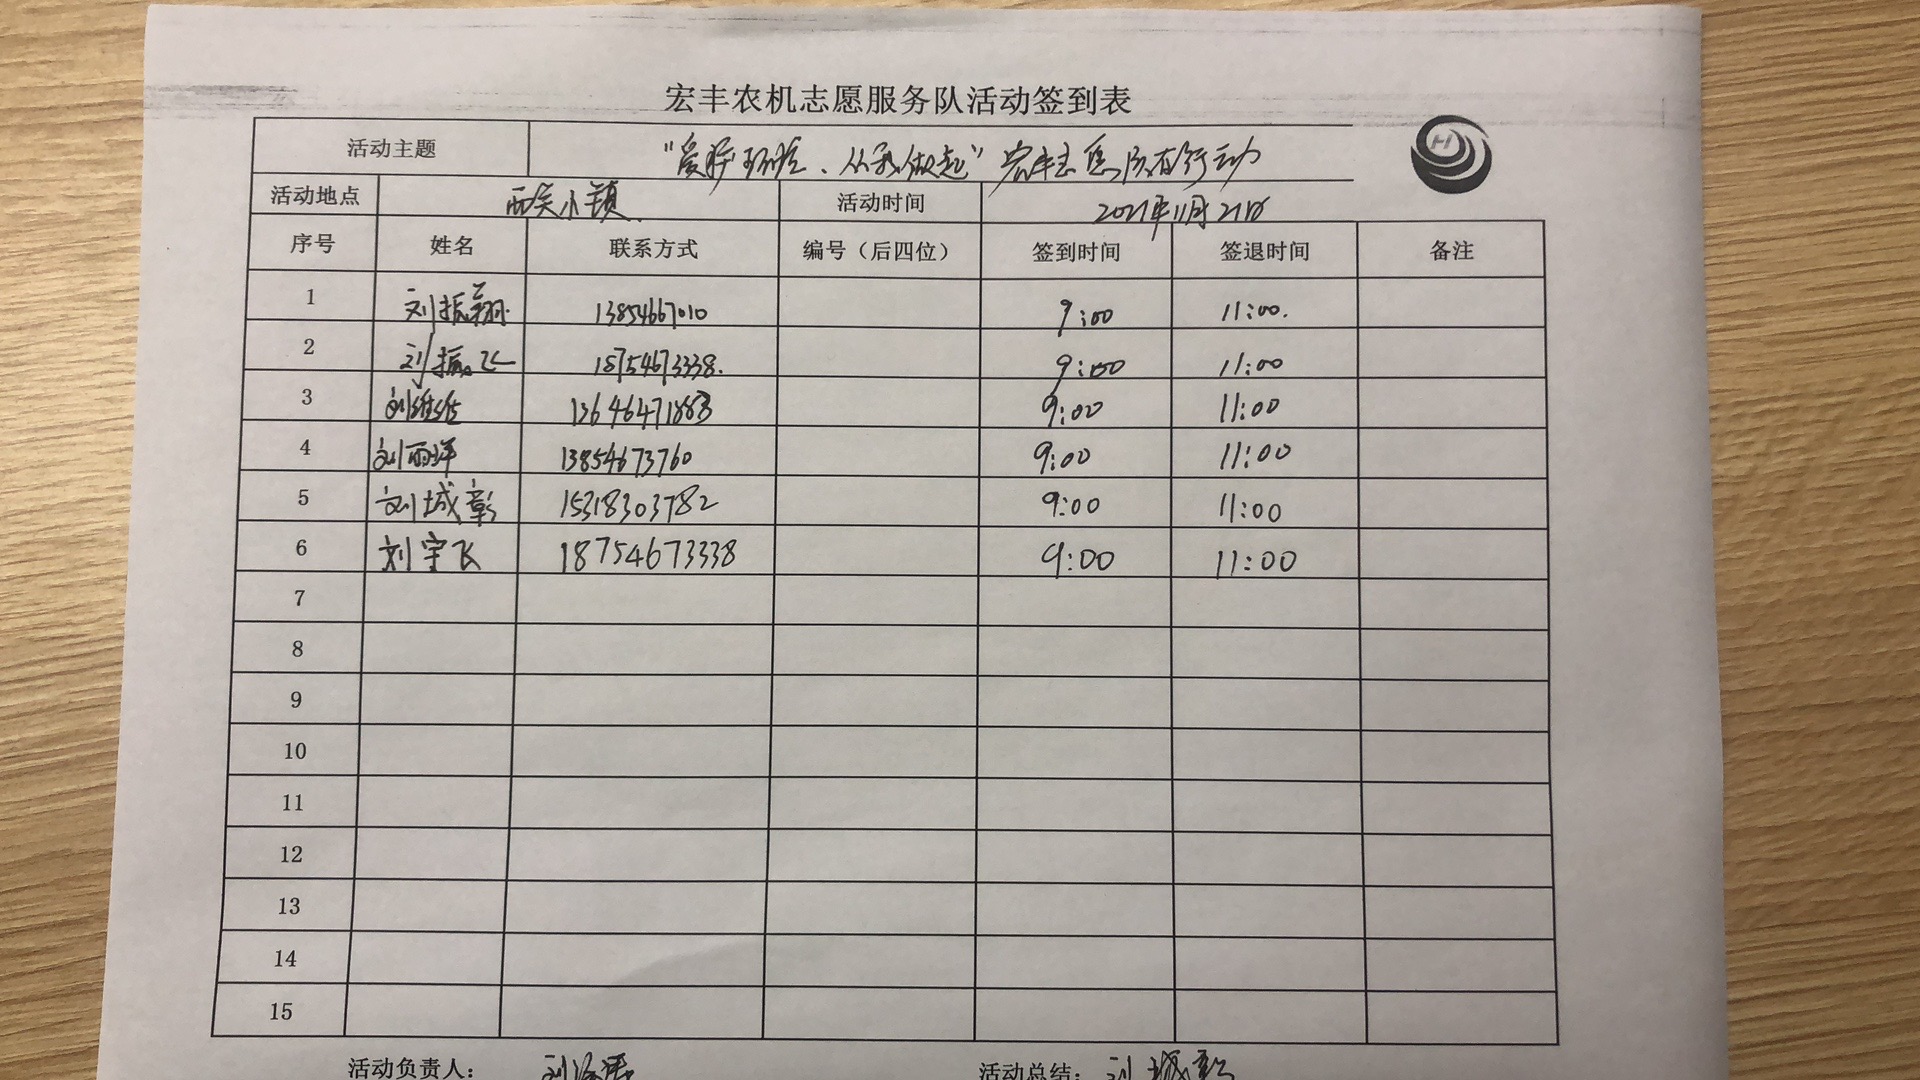 宏丰农机志愿服务队活动签到表
活动主题 "爱护环境、从我做起" 宏丰志愿队在行动
活动地点 西吴小镇 活动时间 2021年11月21日
序号 姓名 联系方式 编号（后四位） 签到时间 签退时间 备注
1 刘振翔 13854667010 9:00 11:00.
2 刘振飞 18754673338. 9:00 11:00
3 刘维维 13646471888 9:00 11:00
4 刘雨洋 13854673760 9:00 11:00
5 刘城彰 15318303782 9:00 11:00
6 刘宇飞 18754673338 9:00 11:00
7
8
9
10
11
12
13
14
15
活动负责人： 活动总结： 刘城彰